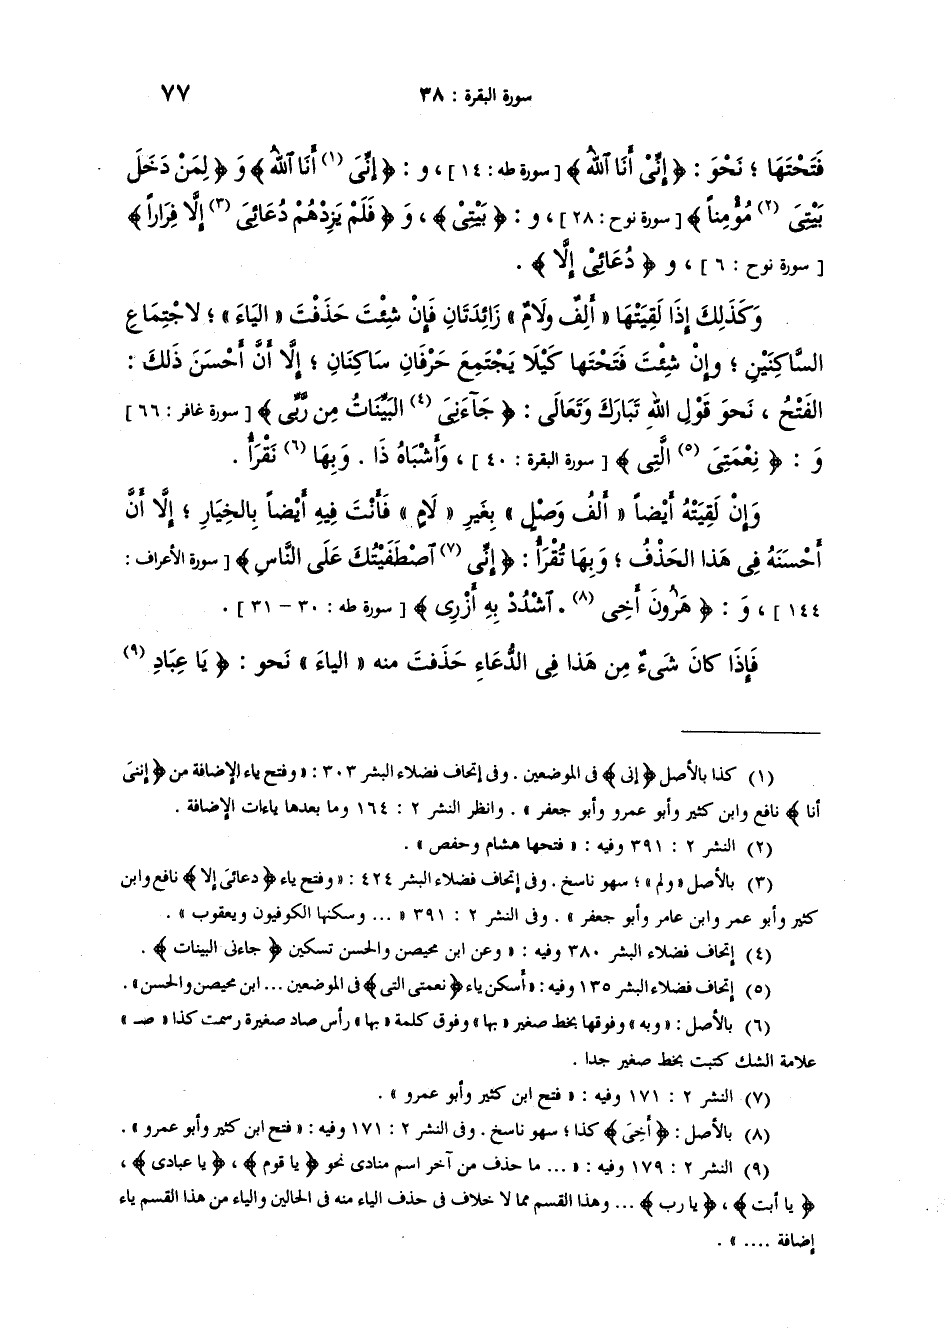 سورة البقرة : ٣٨ ٧٧
فَتَحْتَهَا ؛ نَحْوَ : ﴿ إِنِّىْ أَنَا ٱللهُ ﴾ [ سورة طه : ١٤ ] ، و : ﴿ إِنِّىَ (١) أَنَا ٱللهُ ﴾ وَ ﴿ لِمَنْ دَخَلَ
بَيْتِىَ (٢) مُؤْمِناً ﴾ [ سورة نوح : ٢٨ ] ، و : ﴿ بَيْتِىْ ﴾ ، وَ ﴿ فَلَمْ يَزِدْهُمْ دُعَائِىَ (٣) إِلَّا فِرَاراً ﴾
[ سورة نوح : ٦ ] ، و ﴿ دُعَائِىْ إِلَّا ﴾ .
وَكَذَلِكَ إِذَا لَقِيَتْهَا « أَلِفٌ ولَامٌ » زَائِدَتَانِ فَإِنْ شِئْتَ حَذَفْتَ « اليَاءَ » ؛ لاجْتِمَاعِ
السَّاكِنَيْنِ ؛ وإِنْ شِئْتَ فَتَحْتَها كَيْلَا يَجْتَمِعَ حَرْفَانِ سَاكِنَانِ ؛ إِلَّا أَنَّ أَحْسَنَ ذَلكَ :
الفَتْحُ ، نَحوَ قَوْلِ اللهِ تَبَارَكَ وَتَعَالَى : ﴿ جَآءَنِىَ (٤) البَيِّنَاتُ مِن رَّبِّى ﴾ [ سورة غافر : ٦٦ ]
وَ : ﴿ نِعْمَتِىَ (٥) الَّتِى ﴾ [ سورة البقرة : ٤٠ ] ، وَأَشْبَاهُ ذَا . وَبِهَا (٦) نَقْرَأُ .
وَإِنْ لَقِيَتْهُ أَيْضاً « أَلفُ وَصْلٍ » بِغَيرِ « لَامٍ » فَأَنْتَ فِيهِ أَيْضاً بالخِيَارِ ؛ إِلَّا أَنَّ
أَحْسَنَهُ فِى هَذَا الحَذْفُ ؛ وَبِهَا نُقْرَأُ : ﴿ إِنِّى (٧) ٱصْطَفَيْتُكَ عَلَى النَّاسِ ﴾ [ سورة الأعراف :
١٤٤ ] ، وَ : ﴿ هَرُونَ أَخِى (٨) . ٱشْدُدْ بِهِ أَزْرِى ﴾ [ سورة طه : ٣٠ – ٣١ ] .
فَإِذَا كانَ شَىءٌ مِن هَذا فِى الدُّعَاءِ حَذَفتَ منه « الياءَ » نَحو : ﴿ يَا عِبَادِ (٩)
(١) كذا بالأصل ﴿ إنى ﴾ فى الموضعين . وفى إتحاف فضلاء البشر ٣٠٣ : « وفتح ياء الإضافة من ﴿ إننىَ
أنا ﴾ نافع وابن كثير وأبو عمرو وأبو جعفر » . وانظر النشر ٢ : ١٦٤ وما بعدها ياءات الإضافة .
(٢) النشر ٢ : ٣٩١ وفيه : « فتحها هشام وحفص » .
(٣) بالأصل « ولم » ؛ سهو ناسخ . وفى إتحاف فضلاء البشر ٤٢٤ : « وفتح ياء ﴿ دعائىَ إلا ﴾ نافع وابن
كثير وأبو عمر وابن عامر وأبو جعفر » . وفى النشر ٢ : ٣٩١ « ... وسكنها الكوفيون ويعقوب » .
(٤) إتحاف فضلاء البشر ٣٨٠ وفيه : « وعن ابن محيصن والحسن تسكين ﴿ جاءنى البينات ﴾ .
(٥) إتحاف فضلاء البشر ١٣٥ وفيه : « أسكن ياء ﴿ نعمتى التى ﴾ فى الموضعين ... ابن محيصن والحسن » .
(٦) بالأصل : « وبه » وفوقها بخط صغير « بها » وفوق كلمة « بها » رأس صاد صغيرة رسمت كذا « صـ »
علامة الشك كتبت بخط صغير جدا .
(٧) النشر ٢ : ١٧١ وفيه : « فتح ابن كثير وأبو عمرو » .
(٨) بالأصل : ﴿ أخىَ ﴾ كذا ؛ سهو ناسخ . وفى النشر ٢ : ١٧١ وفيه : « فتح ابن كثير وأبو عمرو » .
(٩) النشر ٢ : ١٧٩ وفيه : « ... ما حذف من آخر اسم منادى نحو ﴿ يا قوم ﴾ ، ﴿ يا عبادى ﴾ ،
﴿ يا أبت ﴾ ، ﴿ يا رب ﴾ ... وهذا القسم مما لا خلاف فى حذف الياء منه فى الحالين والياء من هذا القسم ياء
إضافة .... » .